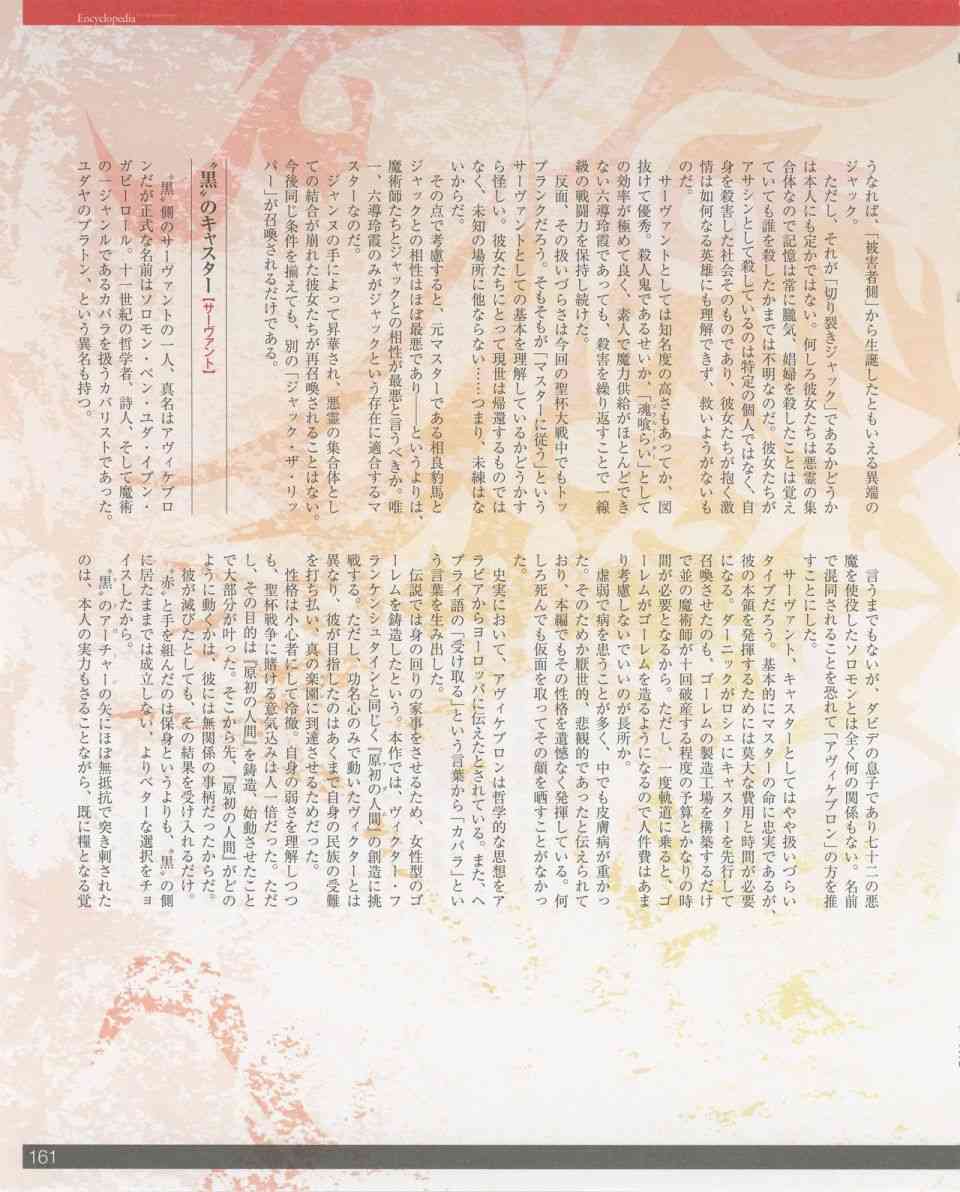 Encyclopedia
うなれば、「被害者側」から生誕したともいえる異端の
ジャック。
ただし、それが「切り裂きジャック」であるかどうか
は本人にも定かではない。何しろ彼女たちは悪霊の集
合体なので記憶は常に朧気、娼婦を殺したことは覚え
ていても誰を殺したかまでは不明なのだ。彼女たちが
アサシンとして殺しているのは特定の個人ではなく、自
身を殺害した社会そのものであり、彼女たちが抱く激
情は如何なる英雄にも理解できず、救いようがないも
のだ。
サーヴァントとしては知名度の高さもあってか、図
抜けて優秀。殺人鬼であるせいか、「魂喰らい」として
の効率が極めて良く、素人で魔力供給がほとんどでき
ない六導玲霞であっても、殺害を繰り返すことで一線
級の戦闘力を保持し続けた。
反面、その扱いづらさは今回の聖杯大戦中でもトッ
プランクだろう。そもそもが「マスターに従う」という
サーヴァントとしての基本を理解しているかどうかす
ら怪しい。彼女たちにとって現世は帰還するものでは
なく、未知の場所に他ならない……つまり、未練はな
いからだ。
その点で考慮すると、元マスターである相良豹馬と
ジャックとの相性はほぼ最悪であり――というよりは、
魔術師たちとジャックとの相性が最悪と言うべきか。唯
一、六導玲霞のみがジャックという存在に適合するマ
スターなのだ。
ジャンヌの手によって昇華され、悪霊の集合体とし
ての結合が崩れた彼女たちが再召喚されることはない。
今後同じ条件を揃えても、別の「ジャック・ザ・リッ
パー」が召喚されるだけである。
〝黒〟のキャスター【サーヴァント】
〝黒〟側のサーヴァントの一人、真名はアヴィケブロ
ンだが正式な名前はソロモン・ベン・ユダ・イブン・
ガビーロール。十一世紀の哲学者、詩人、そして魔術
の一ジャンルであるカバラを扱うカバリストであった。
ユダヤのプラトン、という異名も持つ。
言うまでもないが、ダビデの息子であり七十二の悪
魔を使役したソロモンとは全く何の関係もない。名前
で混同されることを恐れて「アヴィケブロン」の方を推
すことにした。
サーヴァント、キャスターとしてはやや扱いづらい
タイプだろう。基本的にマスターの命に忠実であるが、
彼の本領を発揮するためには莫大な費用と時間が必要
になる。ダーニックがロシェにキャスターを先行して
召喚させたのも、ゴーレムの製造工場を構築するだけ
で並の魔術師が十回破産する程度の予算とかなりの時
間が必要となるから。ただし、一度軌道に乗ると、ゴ
ーレムがゴーレムを造るようになるので人件費はあま
り考慮しないでいいのが長所か。
虚弱で病を患うことが多く、中でも皮膚病が重かっ
た。そのためか厭世的、悲観的であったと伝えられて
おり、本編でもその性格を遺憾なく発揮している。何
しろ死んでも仮面を取ってその顔を晒すことがなかっ
た。
史実において、アヴィケブロンは哲学的な思想をア
ラビアからヨーロッパに伝えたとされている。また、ヘ
ブライ語の「受け取る」という言葉から「カバラ」とい
う言葉を生み出した。
伝説では身の回りの家事をさせるため、女性型のゴ
ーレムを鋳造したという。本作では、ヴィクター・フ
ランケンシュタインと同じく『原初の人間』の創造に挑
戦する。ただし、功名心のみで動いたヴィクターとは
異なり、彼が目指したのはあくまで自身の民族の受難
を打ち払い、真の楽園に到達させるためだった。
性格は小心者にして冷徹。自身の弱さを理解しつつ
も、聖杯戦争に賭ける意気込みは人一倍だった。ただ
し、その目的は『原初の人間』を鋳造、始動させたこと
で大部分が叶った。そこから先、『原初の人間』がどの
ように動くかは、彼には無関係の事柄だったからだ。
彼が滅びたとしても、その結果を受け入れるだけ。
〝赤〟と手を組んだのは保身というよりも、〝黒〟の側
に居たままでは成立しない、よりベターな選択をチョ
イスしたから。
〝黒〟のアーチャーの矢にほぼ無抵抗で突き刺された
のは、本人の実力もさることながら、既に糧となる覚
161